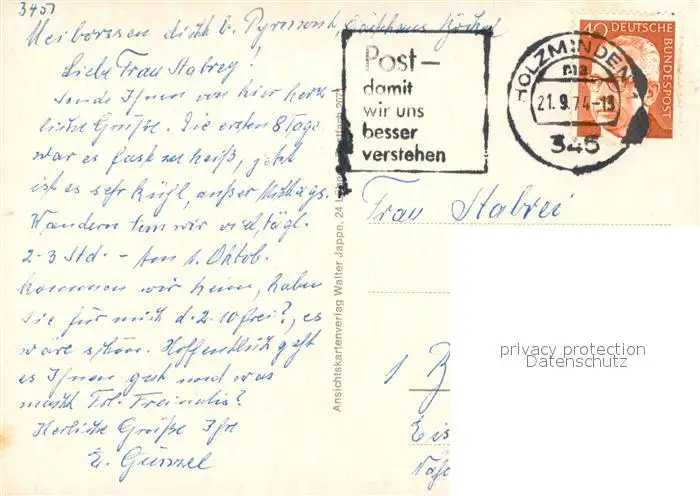 3451
Meiborssen dicht b. Pyrmont, Gästehaus
Liebe Frau Stabrey!
Sende Ihnen von hier herz-
liche Grüße. Die ersten 8 Tage
war es fast zu heiß, jetzt
ist es sehr kühl, außer Mittags.
Wandern tun wir viel, tägl.
2-3 Std. - Am 1. Oktob.
kommen wir heim, haben
Sie für mich d. 2.10 frei?, es
wäre schön. Hoffentlich geht
es Ihnen gut und was
macht Frl.
Herzliche Grüße Ihre
E. Günzel
Ansichtskartenverlag Walter Jappe, 24
Post –
damit
wir uns
besser
verstehen
HOLZMINDEN
ma
21.9.74-13
345
40 DEUTSCHE
BUNDESPOST
Frau Stabrei
1 B
Eis
privacy protection
Datenschutz